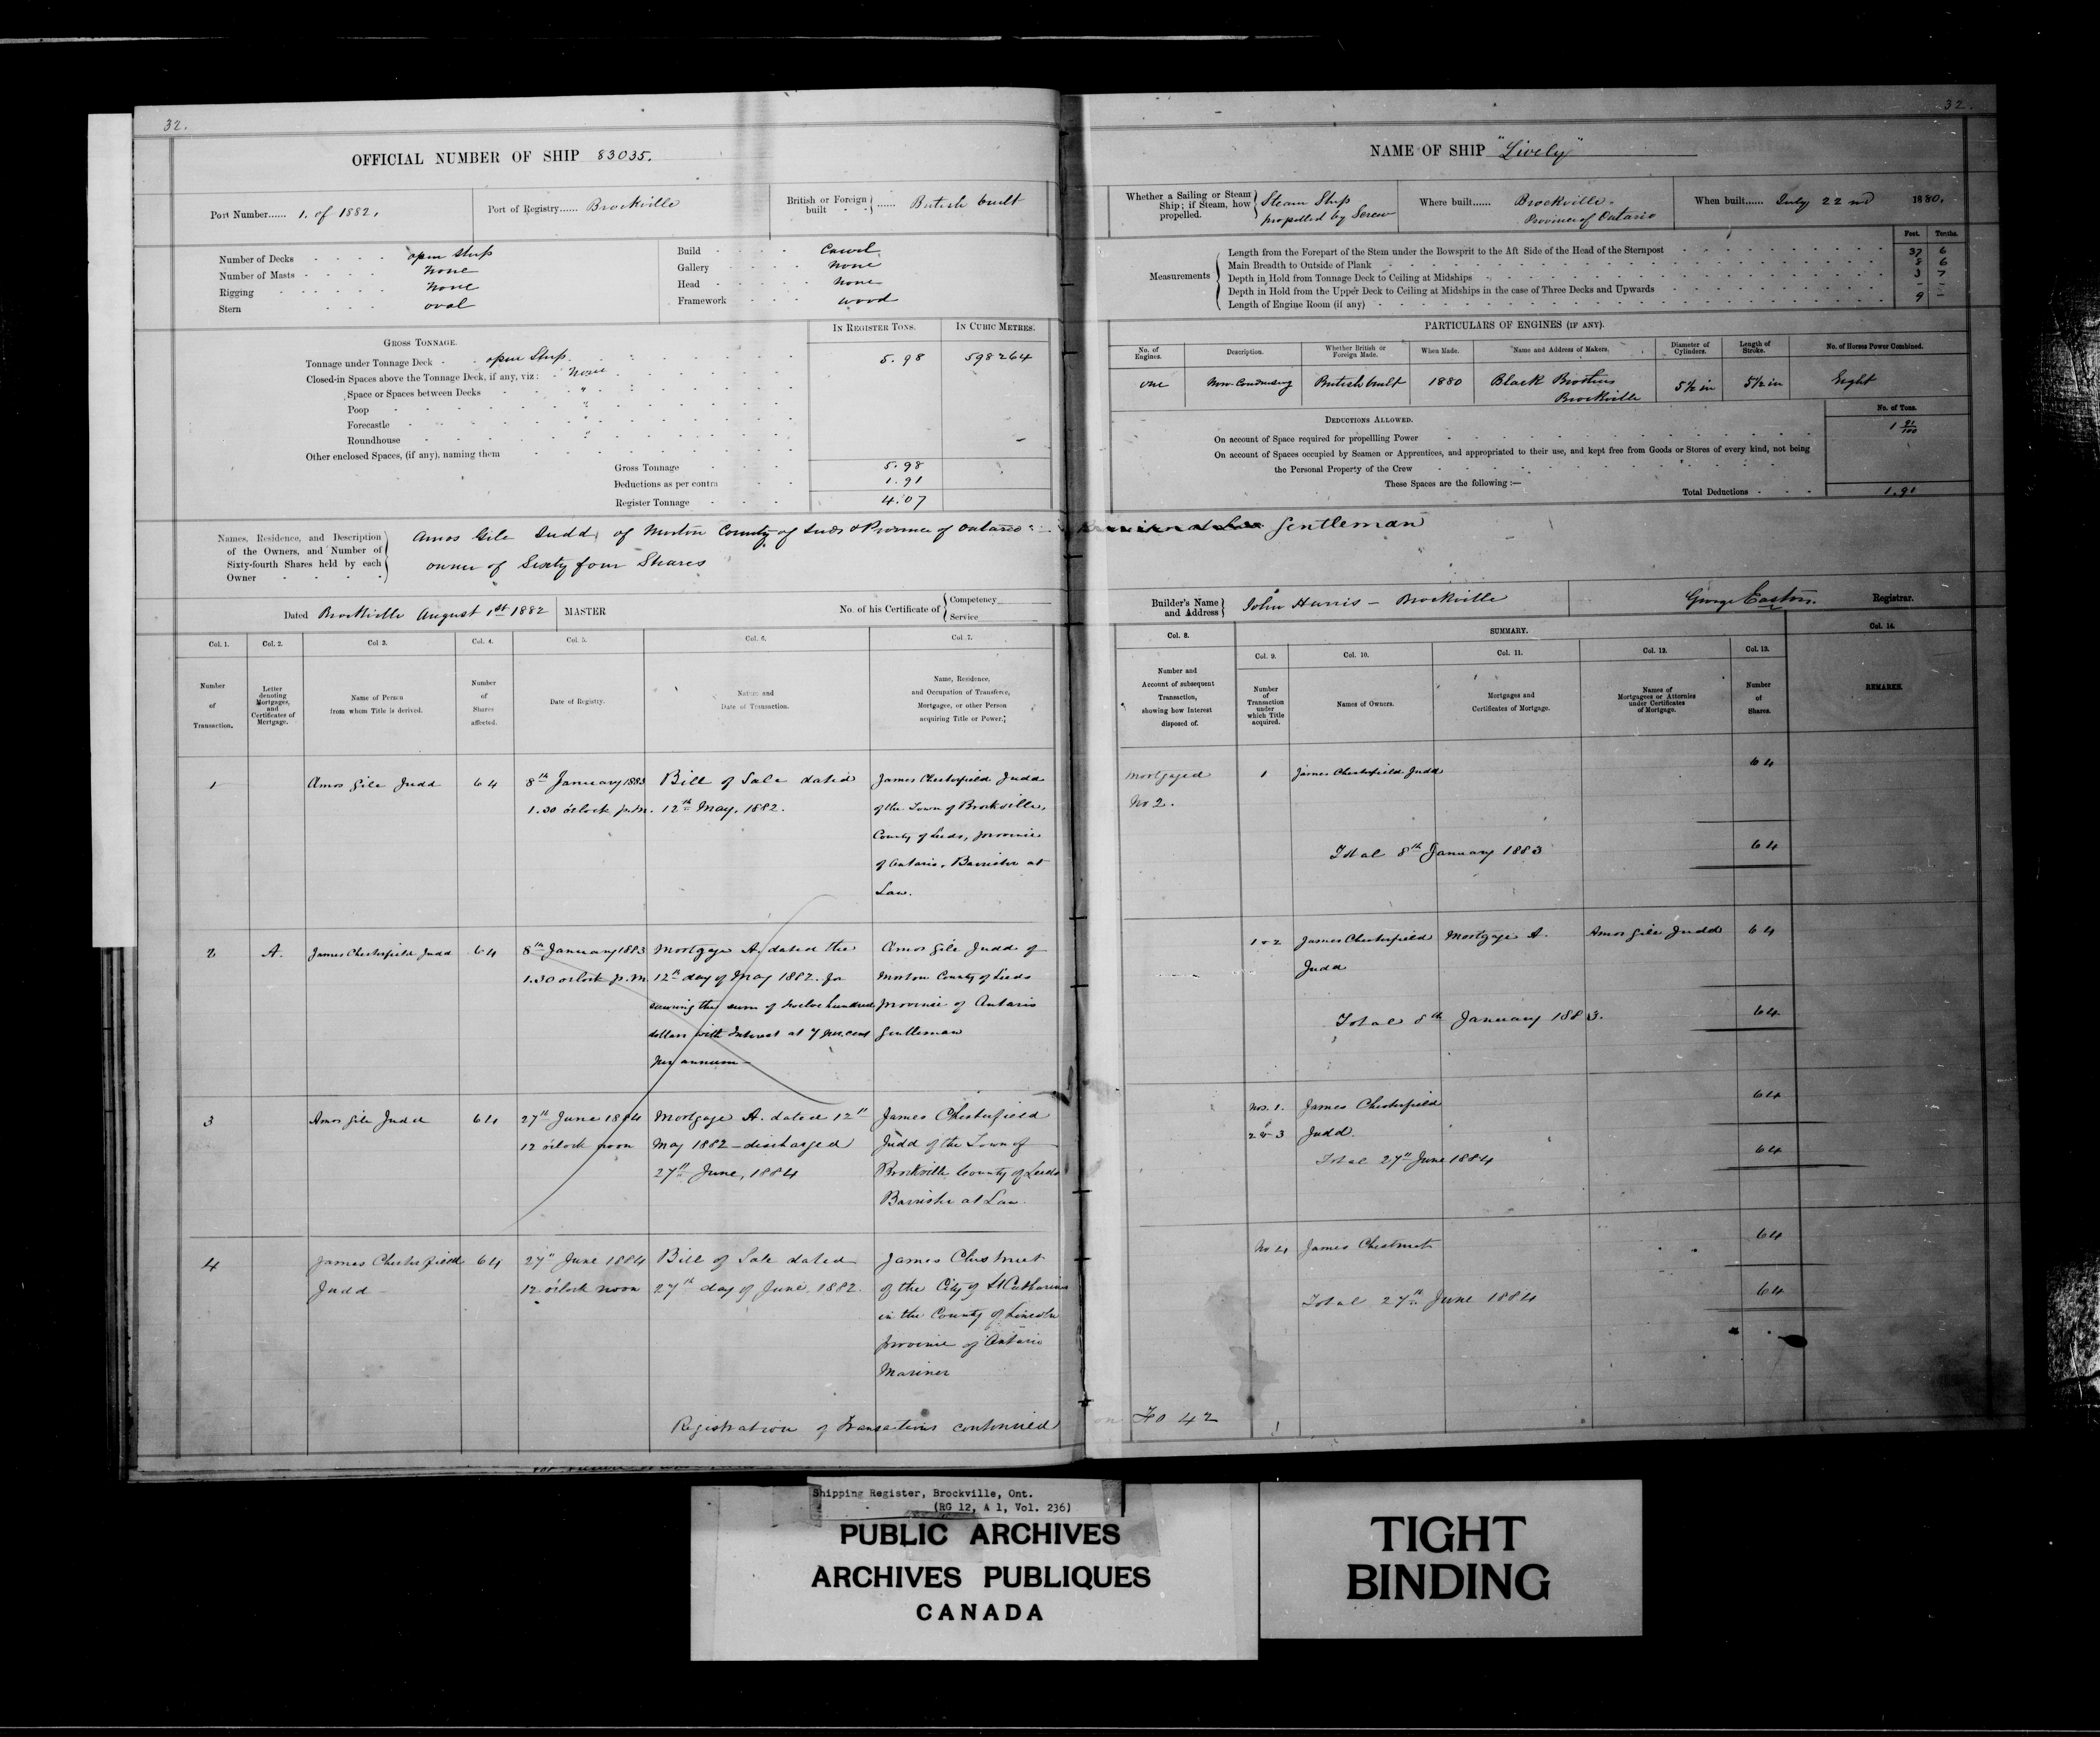 32.
OFFICIAL NUMBER OF SHIP 83035.
Port Number...... 1. of 1882.
Port of Registry...... Brockville
British or Foreign built ...... British built
Number of Decks open Ship
Number of Masts none
Rigging none
Stern oval
Build Carvel
Gallery none
Head none
Framework wood
GROSS TONNAGE.
IN REGISTER TONS. IN CUBIC METRES.
Tonnage under Tonnage Deck open Ship. 5.98 598264
Closed-in Spaces above the Tonnage Deck, if any, viz: none
Space or Spaces between Decks "
Poop "
Forecastle "
Roundhouse "
Other enclosed Spaces, (if any), naming them
Gross Tonnage 5.98
Deductions as per contra 1.91
Register Tonnage 4.07
Names, Residence, and Description of the Owners, and Number of Sixty-fourth Shares held by each Owner
Amos Gile Judd, of Morton County of Leeds & Province of Ontario
owner of Sixty four Shares
Dated Brockville August 1st 1882 MASTER No. of his Certificate of Competency Service
Col. 1. Col. 2. Col. 3. Col. 4. Col. 5. Col. 6. Col. 7.
Number of Transaction.
Letter denoting Mortgages, and Certificates of Mortgage.
Name of Person from whom Title is derived.
Number of Shares affected.
Date of Registry.
Nature and Date of Transaction.
Name, Residence, and Occupation of Transferee, Mortgagee, or other Person acquiring Title or Power.
1 Amos Gile Judd 64 8th January 1883 Bill of Sale dated James Chesterfield Judd
1.30 o'clock p.m. 12th May, 1882. of the Town of Brockville,
County of Leeds, province
of Ontario, Barrister at
Law.
2 A. James Chesterfield Judd 64 8th January 1883 Mortgage A. dated the Amos Gile Judd of
1.30 o'clock p.m. 12th day of May 1882. for Morton County of Leeds
securing the sum of twelve hundred province of Ontario
dollars with Interest at 7 per cent Gentleman
per annum
3 Amos Gile Judd 64 27th June 1884 Mortgage A. dated 12th James Chesterfield
12 o'clock noon May 1882 - discharged Judd of the Town of
27th June, 1884 Brockville County of Leeds
Barrister at Law.
4 James Chesterfield 64 27th June 1884 Bill of Sale dated James Chestnut
Judd 12 o'clock noon 27th day of June, 1882. of the City of St Catharines
in the County of Lincoln
province of Ontario
Mariner
Registration of Transactions continued
32.
NAME OF SHIP "Lively"
Whether a Sailing or Steam Ship; if Steam, how propelled. Steam Ship
propelled by Screw
Where built...... Brockville.
Province of Ontario
When built...... July 22nd 1880.
Measurements
Feet. Tenths.
Length from the Forepart of the Stem under the Bowsprit to the Aft Side of the Head of the Sternpost 37 6
Main Breadth to Outside of Plank 8 6
Depth in Hold from Tonnage Deck to Ceiling at Midships 3 7
Depth in Hold from the Upper Deck to Ceiling at Midships in the case of Three Decks and Upwards - -
Length of Engine Room (if any) 9 -
PARTICULARS OF ENGINES (IF ANY).
No. of Engines. Description. Whether British or Foreign Made. When Made. Name and Address of Makers. Diameter of Cylinders. Length of Stroke. No. of Horses Power Combined.
one Non-Condensing British built 1880 Black Brothers 5½ in 5½ in Eight
Brockville
DEDUCTIONS ALLOWED. No. of Tons.
On account of Space required for propellling Power 1 91/100
On account of Spaces occupied by Seamen or Apprentices, and appropriated to their use, and kept free from Goods or Stores of every kind, not being
the Personal Property of the Crew
These Spaces are the following:—
Total Deductions 1.91
Gentleman
Builder's Name and Address John Harris - Brockville
George Easton. Registrar.
Col. 8. SUMMARY. Col. 14.
Col. 9. Col. 10. Col. 11. Col. 12. Col. 13.
Number and Account of subsequent Transaction, showing how Interest disposed of.
Number of Transaction under which Title acquired.
Names of Owners.
Mortgages and Certificates of Mortgage.
Names of Mortgagees or Attornies under Certificates of Mortgage.
Number of Shares.
REMARKS.
Mortgaged 1 James Chesterfield Judd 64
No 2.
Total 8th January 1883 64
1 & 2 James Chesterfield Mortgage A. Amos Gile Judd 64
Judd
Total 8th January 1883. 64
Nos. 1. James Chesterfield 64
2 & 3 Judd.
Total 27th June 1884 64
No 4 James Chestnut 64
Total 27th June 1884 64
on Fo 42
Shipping Register, Brockville, Ont.
(RG 12, A 1, Vol. 236)
PUBLIC ARCHIVES
ARCHIVES PUBLIQUES
CANADA
TIGHT
BINDING